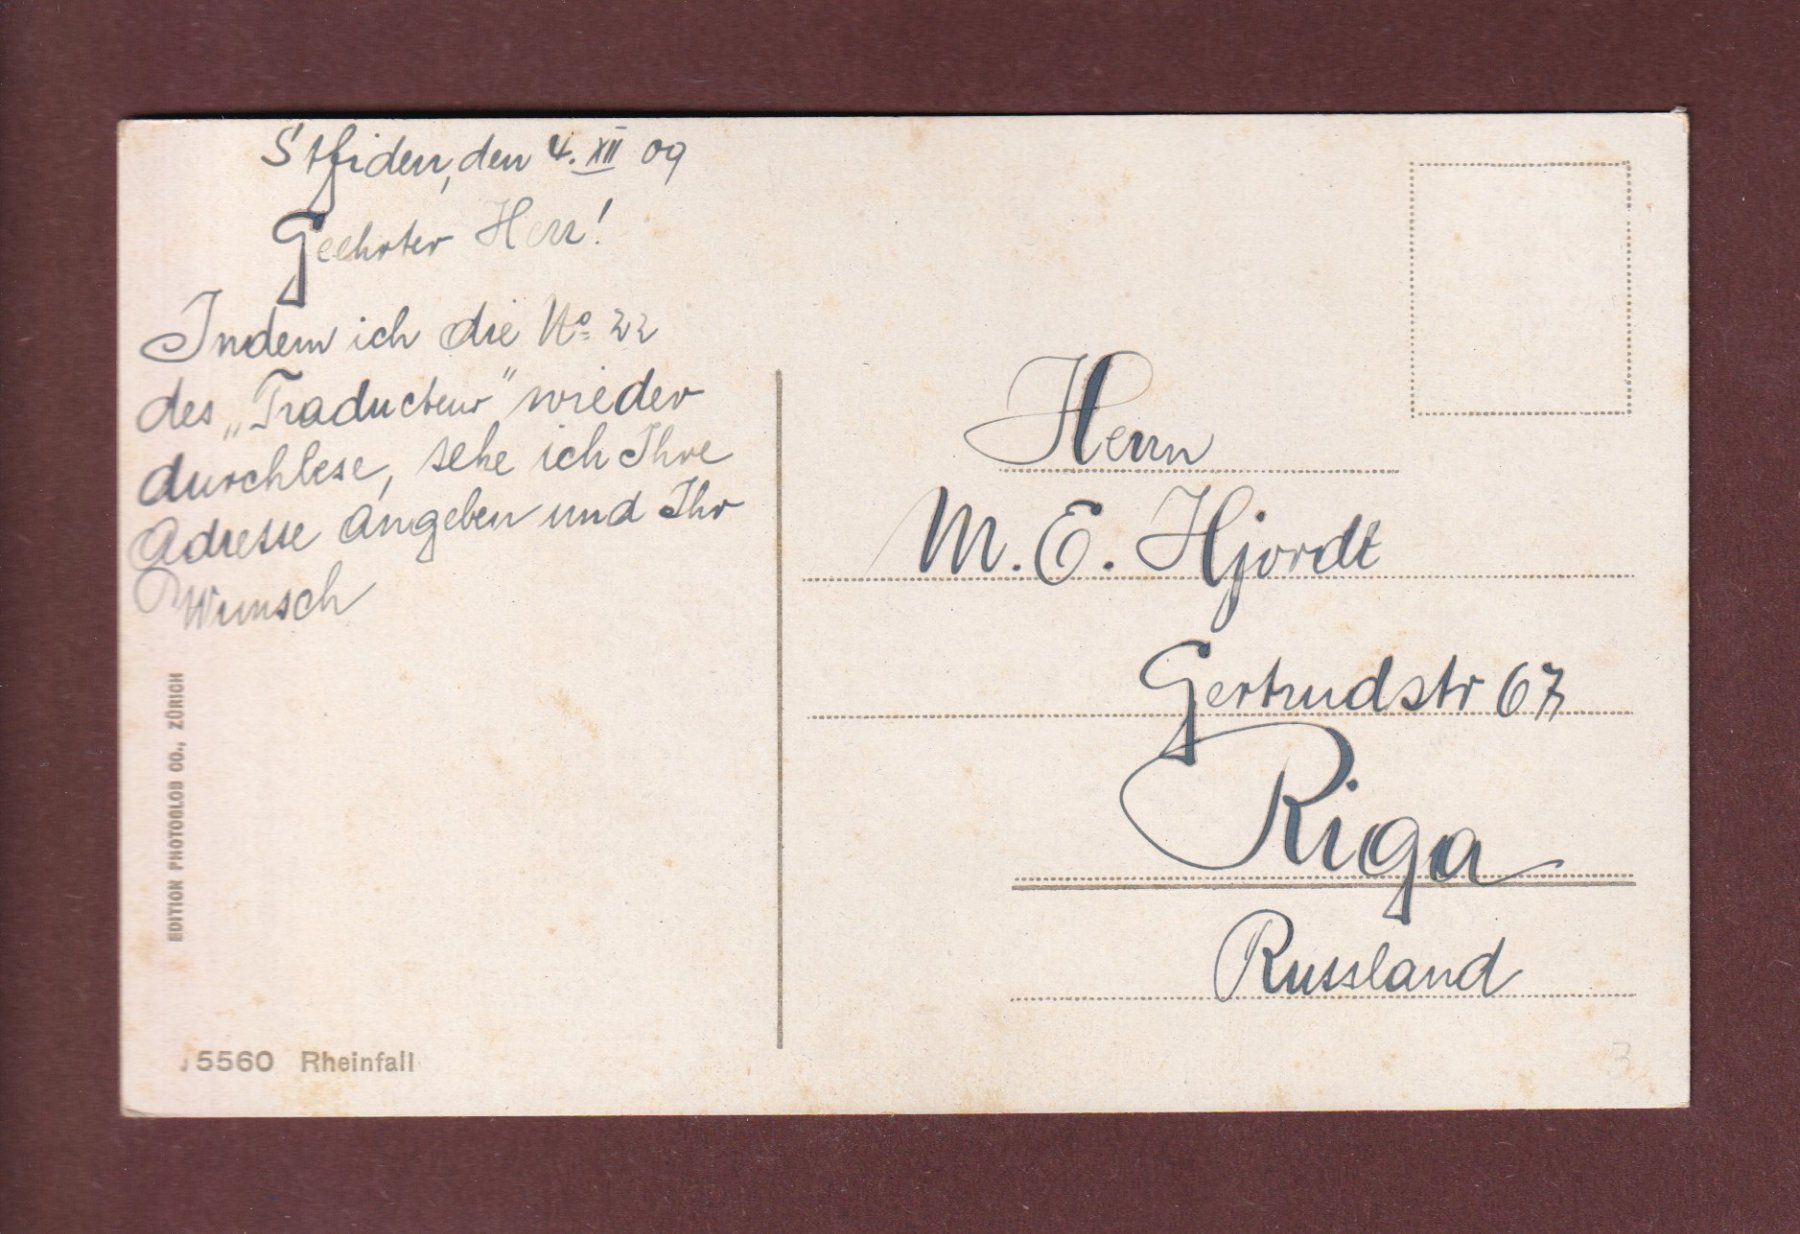 Stfiden, den 4. XII 09
Geehrter Herr!
Indem ich die No 22
des „Traducteur" wieder
durchlese, sehe ich Ihre
Adresse angeben und Ihr
Wunsch
Herrn
M. E. Hjordt
Gertrudstr 67
Riga
Russland
EDITION PHOTOGLOB CO., ZÜRICH
5560 Rheinfall
3